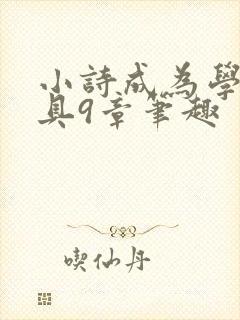 小詩成為學
具9章筆趣
喫仙丹